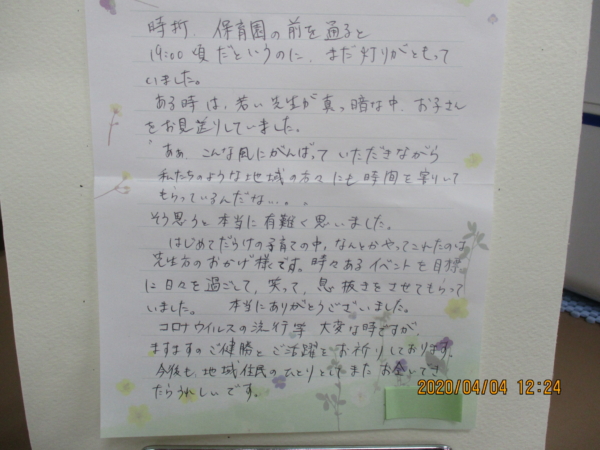 時折、保育園の前を通ると
19:00 頃だというのに、まだ灯りがともって
いました。
ある時は、若い先生が真っ暗な中、お子さん
をお見送りしていました。
"ああ、こんな風にがんばって いただきながら
私たちのような地域の方々にも時間を割いて
もらっているんだな…。。
そう思うと本当に有難く思いました。
はじめてだらけの子育ての中、なんとかやってこれたのは
先生方のおかげ様です。時々あるイベントを目標
に日々を過ごして、笑って、息抜きをさせてもらって
いました。 本当にありがとうございました。
コロナウイルスの流行等 大変な時ですが、
ますますのご健勝とご活躍をお祈りしております。
今後も、地域住民のひとりとしてまたお会いでき
たらうれしいです。
2020/04/04 12:24